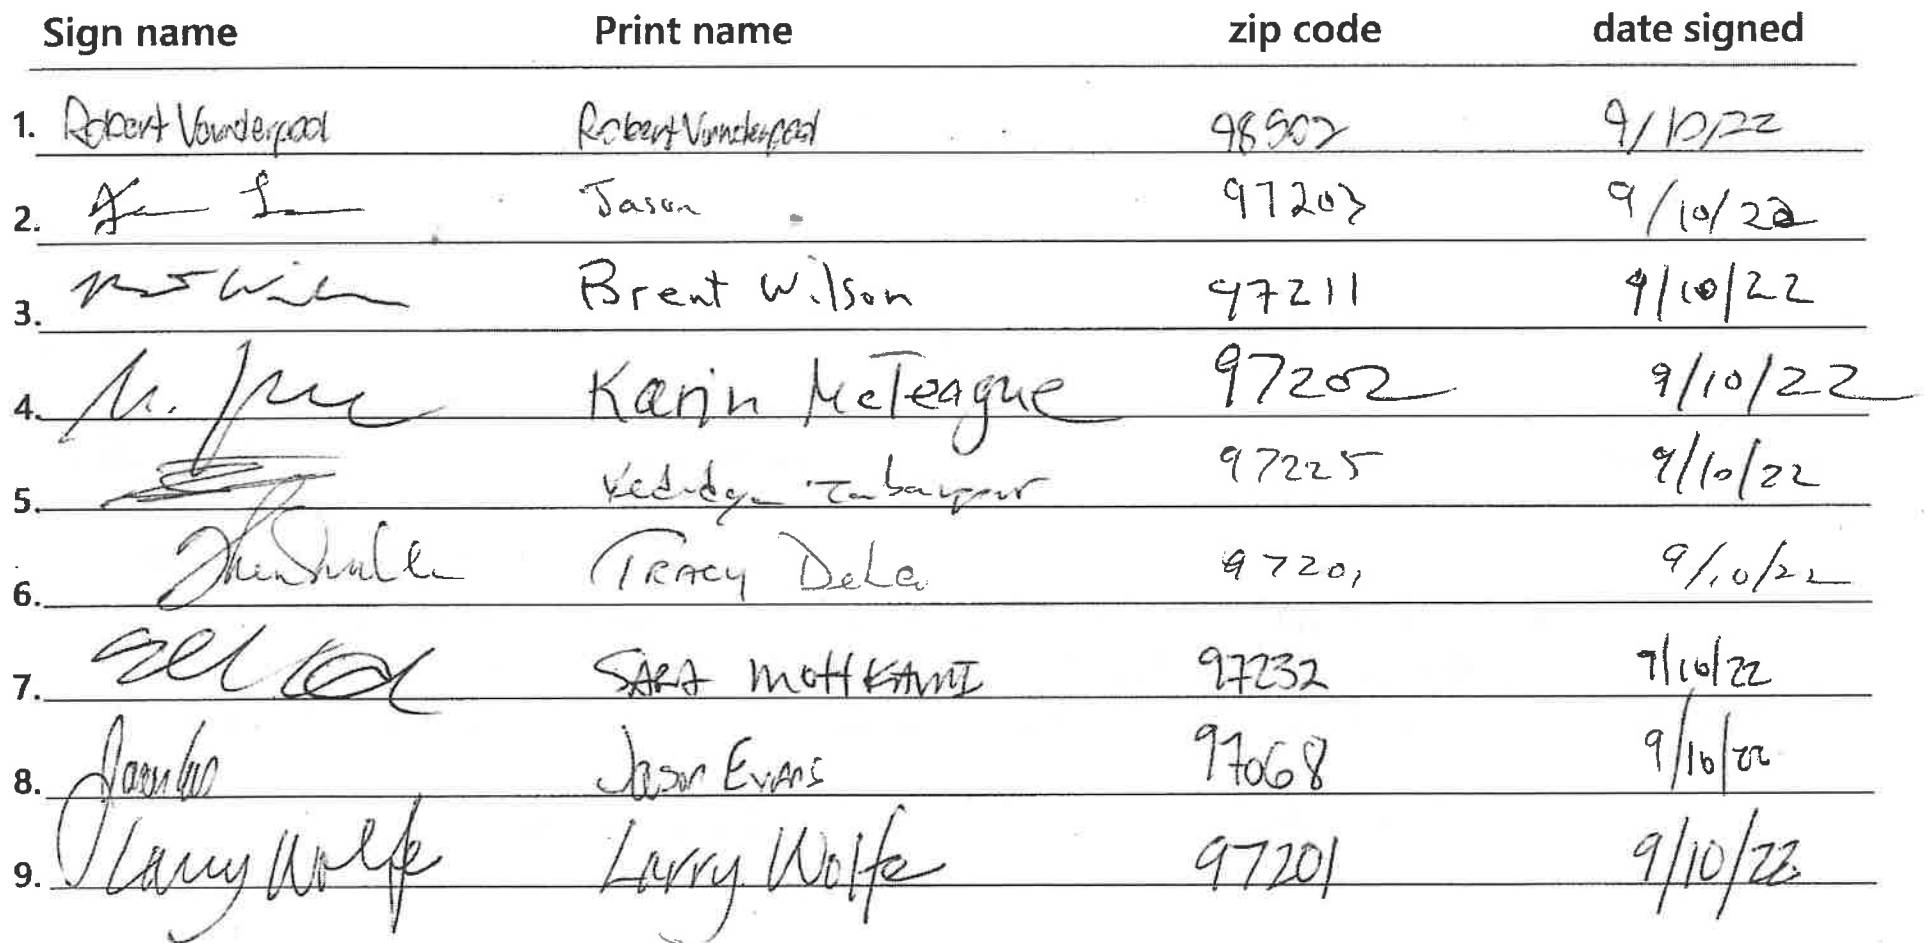 Sign name Print name zip code date signed
1. Robert Vanderpool Robert Vanderpool 98502 9/10/22
2. Jason 97203 9/10/22
3. Brent Wilson 97211 9/10/22
4. Karin McTeague 97202 9/10/22
5. 97225 9/10/22
6. Tracy 97201 9/10/22
7. SARA MottKAMI 97232 9/10/22
8. Jason Evans 97068 9/10/22
9. Larry Wolfe Larry Wolfe 97201 9/10/22